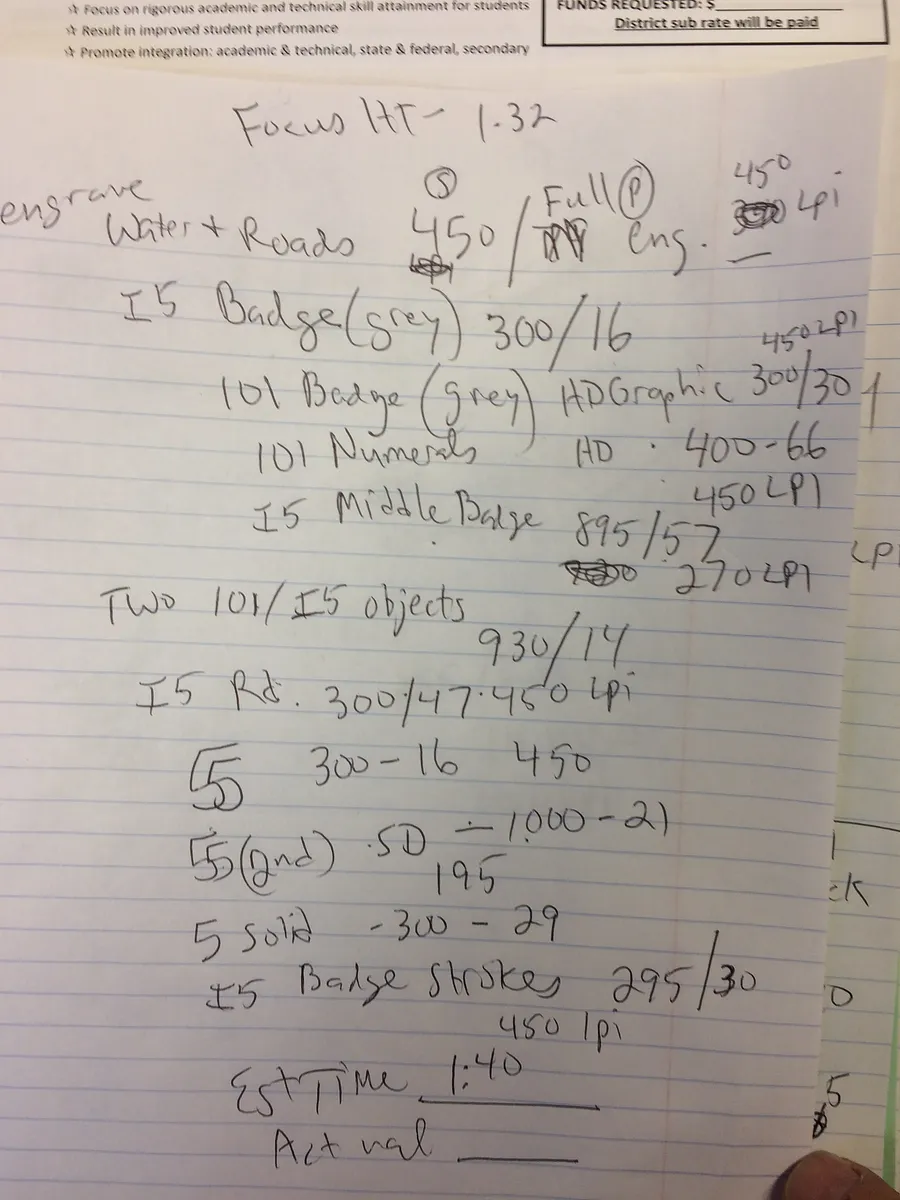 ☆ Focus on rigorous academic and technical skill attainment for students
☆ Result in improved student performance
☆ Promote integration: academic & technical, state & federal, secondary
FUNDS REQUESTED: $
District sub rate will be paid
Focus HT - 1.32
engrave
Water + Roads 450 (S) / Full (P) eng. 450 Lpi
I5 Badge (grey) 300/16
450 LPI
101 Badge (grey) HD Graphic 300/30
101 Numerals HD . 400-66
450 LPI
I5 Middle Badge 895/57
270 LPI
Two 101/I5 objects
930/14
I5 Rd. 300/47.450 Lpi
5 300-16 450
5 (2nd) .SD - 1000-21
195
5 Solid - 300 - 29
I5 Badge Strokes 295/30
450 lpi
Est Time 1:40
Actual
LPI
ck
0
5